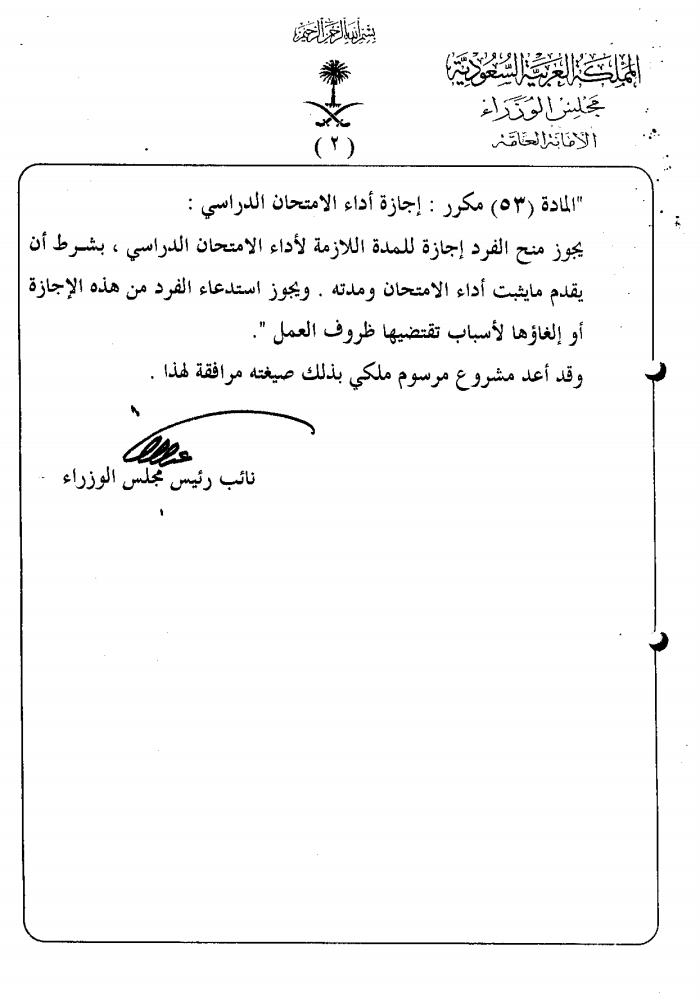 بسم الله الرحمن الرحيم
المملكة العربية السعودية
مجلس الوزراء
الأمانة العامة
(٢)
"المادة (٥٣) مكرر : إجازة أداء الامتحان الدراسي :
يجوز منح الفرد إجازة للمدة اللازمة لأداء الامتحان الدراسي ، بشرط أن
يقدم مايثبت أداء الامتحان ومدته . ويجوز استدعاء الفرد من هذه الإجازة
أو إلغاؤها لأسباب تقتضيها ظروف العمل ".
وقد أعد مشروع مرسوم ملكي بذلك صيغته مرافقة لهذا .
نائب رئيس مجلس الوزراء